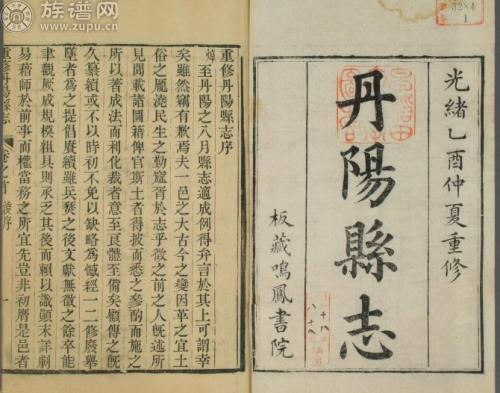 光緒乙酉仲夏重修
丹陽縣志
板藏鳴鳳書院
重修丹陽縣志序
至丹陽之八月縣志適成例得弁言於其上可謂幸
矣雖然竊有歉焉夫一邑之大古今之變因革之宜土
俗之厖澆民生之勤窳胥於志乎徵之前之人既述所
見聞載諸圖籍俾官斯土者得披而悉之參酌而施之
所以著成法而利化裁者意至良體至備矣顧傳之既
久纂續或不以時初不免以缺略為憾經一二修廢舉
墜者為之提倡賡續雖兵燹之後文獻無徵之餘卒能
聿觀厥成規模粗具則承乏其後而賴以識顛末詳利
易藉師於前事而權當務之所宜先豈非初膺是邑者
重修丹陽縣志
卷之首
序
一
3284
1
族谱网
www.zupu.cn